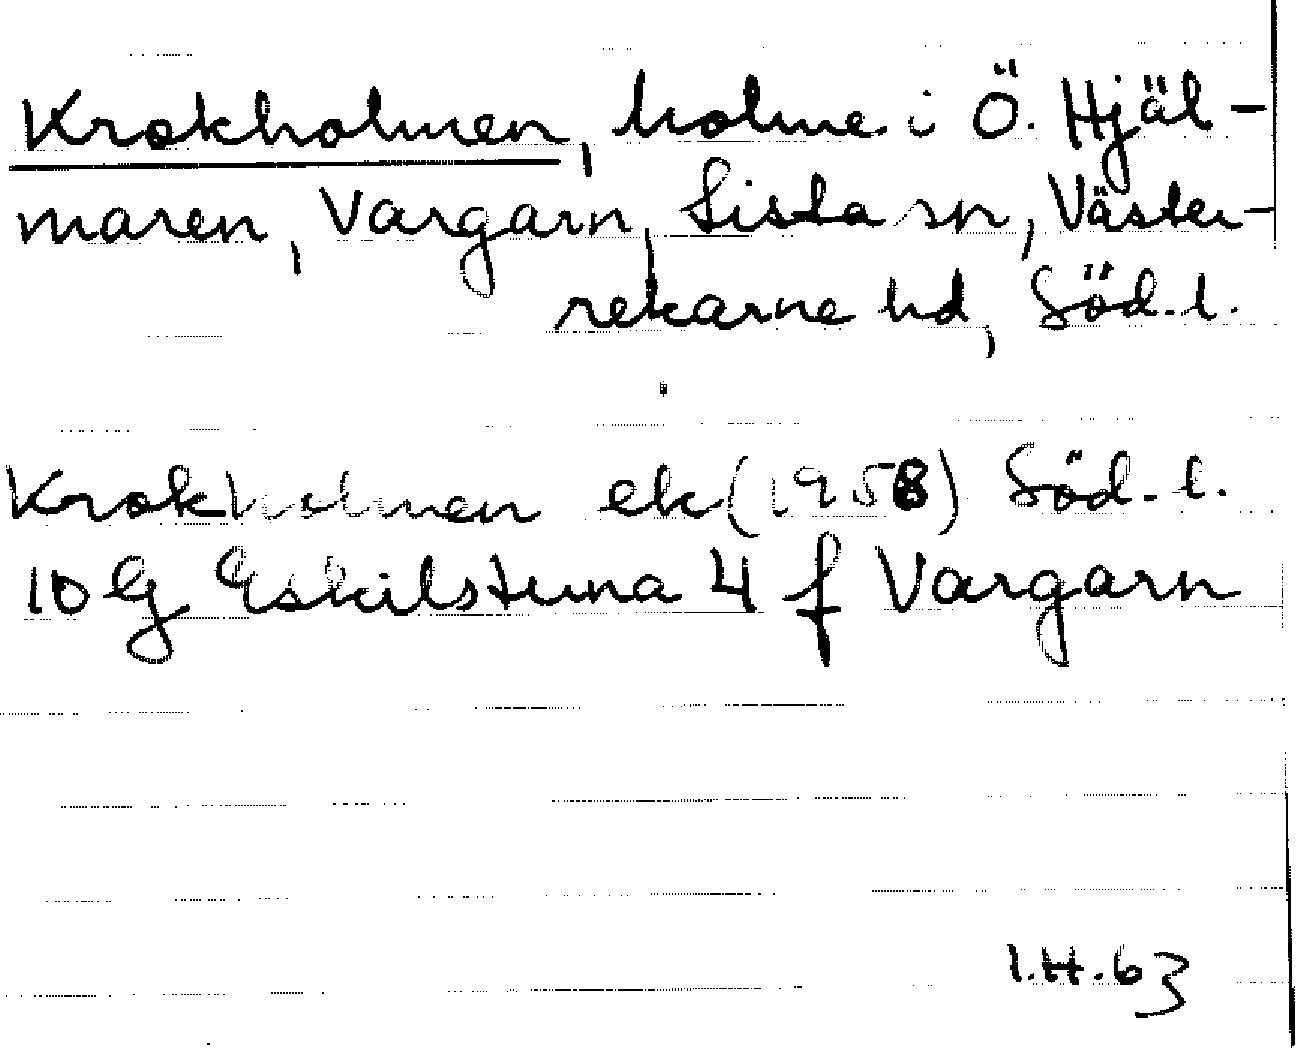 Krokholmen, holme i Ö. Hjäl-
maren, Vargarn, Lista sn, Väster-
rekarne hd, Söd. l.
Krokholmen ek (1958) Söd. l.
10 G Eskilstuna 4 f Vargarn
I.H. 63